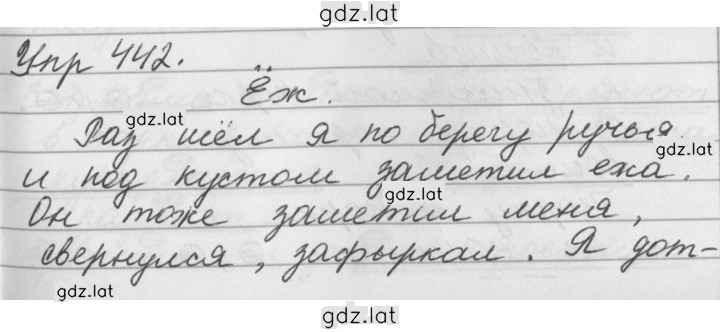 gdz.lat
Упр 442.
Ёж.
gdz.lat
Раз шёл я по берегу ручья
gdz.lat
и под кустом заметил ежа.
gdz.lat
Он тоже заметил меня,
свернулся, зафыркал. Я дот-
gdz.lat
gdz.lat